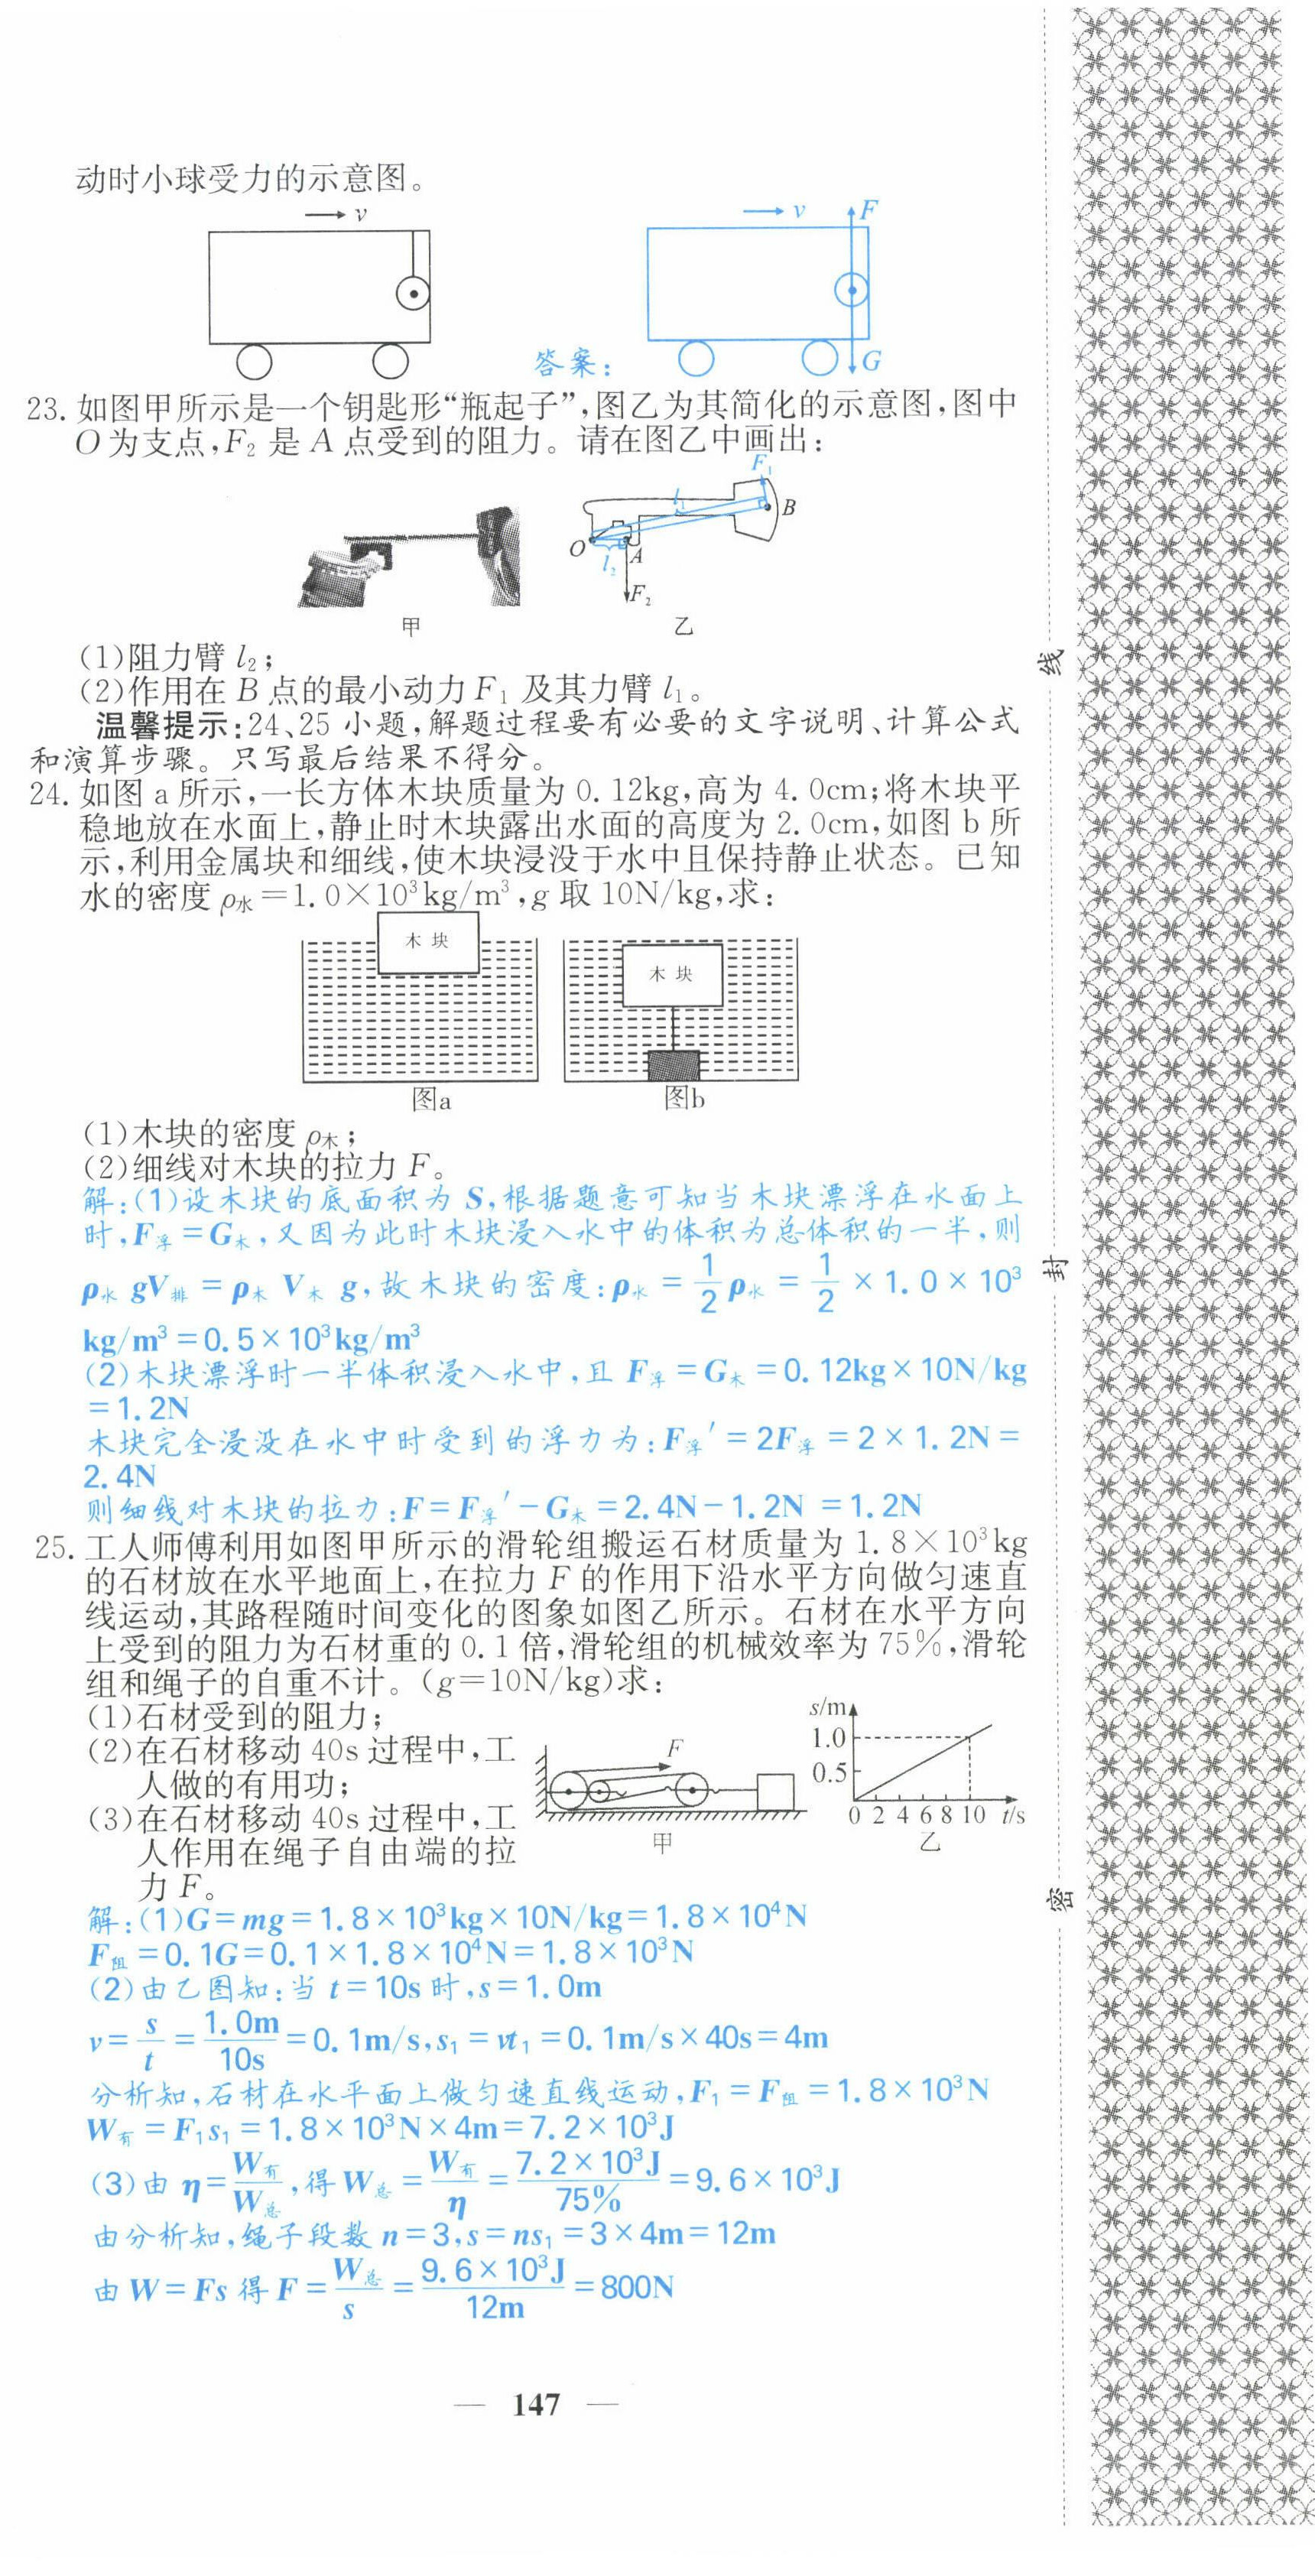 动时小球受力的示意图。
v
v
F
G
答案：
23. 如图甲所示是一个钥匙形“瓶起子”,图乙为其简化的示意图,图中
O 为支点,F₂ 是 A 点受到的阻力。请在图乙中画出：
F₁
l₁
B
O
A
l₂
F₂
甲
乙
(1)阻力臂 l₂；
(2)作用在 B 点的最小动力 F₁ 及其力臂 l₁。
温馨提示:24、25 小题,解题过程要有必要的文字说明、计算公式
和演算步骤。只写最后结果不得分。
24. 如图 a 所示,一长方体木块质量为 0.12kg,高为 4.0cm;将木块平
稳地放在水面上,静止时木块露出水面的高度为 2.0cm,如图 b 所
示,利用金属块和细线,使木块浸没于水中且保持静止状态。已知
水的密度 ρ水=1.0×10³kg/m³,g 取 10N/kg,求：
木块
木块
图a
图b
(1)木块的密度 ρ木；
(2)细线对木块的拉力 F。
解:(1)设木块的底面积为 S,根据题意可知当木块漂浮在水面上
时,F浮=G木,又因为此时木块浸入水中的体积为总体积的一半,则
ρ水 gV排 = ρ木 V木 g,故木块的密度:ρ水 = 1/2 ρ水 = 1/2 × 1.0 × 10³
kg/m³=0.5×10³kg/m³
(2)木块漂浮时一半体积浸入水中,且 F浮=G木=0.12kg×10N/kg
=1.2N
木块完全浸没在水中时受到的浮力为:F浮′=2F浮=2×1.2N=
2.4N
则细线对木块的拉力:F=F浮′-G木=2.4N-1.2N =1.2N
25. 工人师傅利用如图甲所示的滑轮组搬运石材质量为 1.8×10³kg
的石材放在水平地面上,在拉力 F 的作用下沿水平方向做匀速直
线运动,其路程随时间变化的图象如图乙所示。石材在水平方向
上受到的阻力为石材重的 0.1 倍,滑轮组的机械效率为 75%,滑轮
组和绳子的自重不计。(g=10N/kg)求：
(1)石材受到的阻力；
(2)在石材移动 40s 过程中,工
人做的有用功；
(3)在石材移动 40s 过程中,工
人作用在绳子自由端的拉
力 F。
F
甲
s/m
1.0
0.5
0 2 4 6 8 10 t/s
乙
解:(1)G=mg=1.8×10³kg×10N/kg=1.8×10⁴N
F阻=0.1G=0.1×1.8×10⁴N=1.8×10³N
(2)由乙图知:当 t=10s 时,s=1.0m
v= s/t = 1.0m/10s =0.1m/s,s₁=vt₁=0.1m/s×40s=4m
分析知,石材在水平面上做匀速直线运动,F₁=F阻=1.8×10³N
W有=F₁s₁=1.8×10³N×4m=7.2×10³J
(3)由 η= W有/W总,得 W总= W有/η = 7.2×10³J/75% =9.6×10³J
由分析知,绳子段数 n=3,s=ns₁=3×4m=12m
由 W=Fs 得 F= W总/s = 9.6×10³J/12m =800N
— 147 —
线
封
密